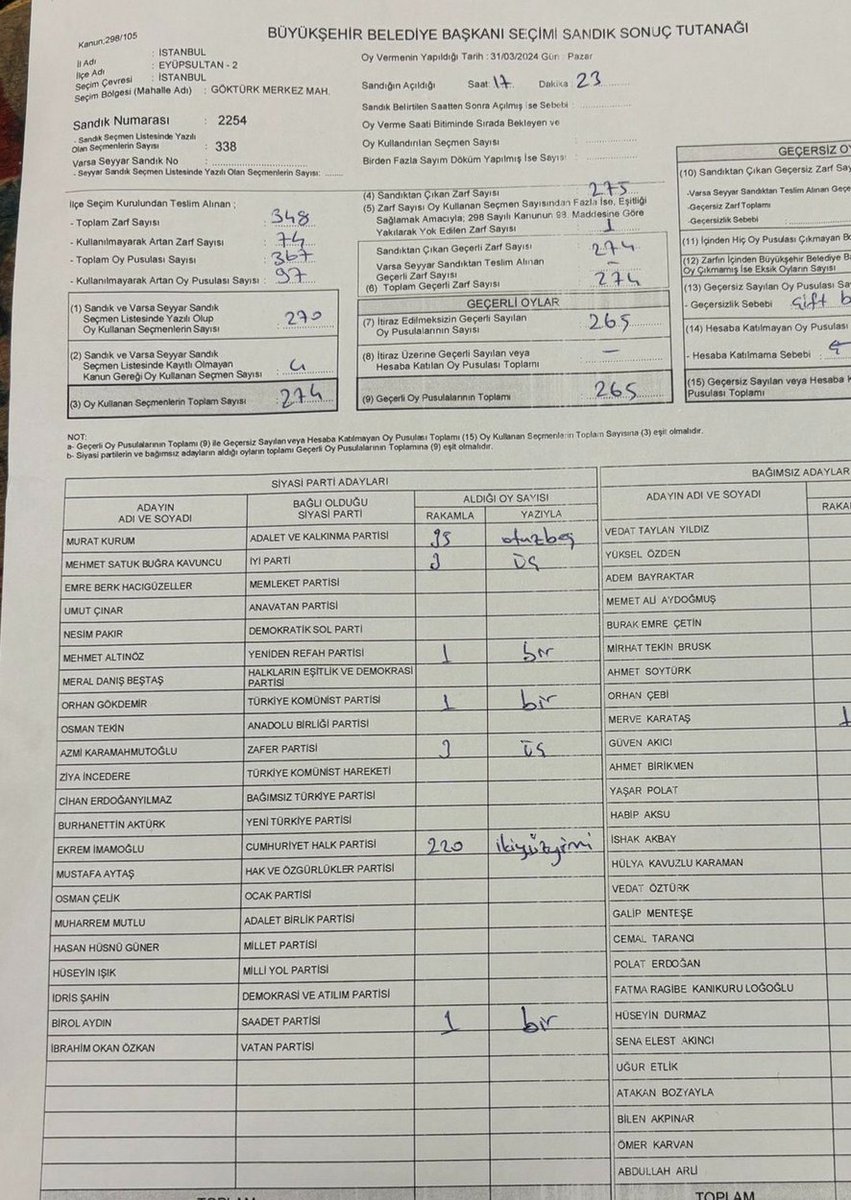 BÜYÜKŞEHİR BELEDİYE BAŞKANI SEÇİMİ SANDIK SONUÇ TUTANAĞI
Kanun,298/105
İl Adı : İSTANBUL
İlçe Adı : EYÜPSULTAN - 2
Seçim Çevresi : İSTANBUL
Seçim Bölgesi (Mahalle Adı) : GÖKTÜRK MERKEZ MAH.
Sandık Numarası : 2254
- Sandık Seçmen Listesinde Yazılı
Olan Seçmenlerin Sayısı : 338
Varsa Seyyar Sandık No :
- Seyyar Sandık Seçmen Listesinde Yazılı Olan Seçmenlerin Sayısı:
Oy Vermenin Yapıldığı Tarih : 31/03/2024 Gün : Pazar
Sandığın Açıldığı Saat: 17 Dakika : 23
Sandık Belirtilen Saatten Sonra Açılmış İse Sebebi :
Oy Verme Saati Bitiminde Sırada Bekleyen ve
Oy Kullandırılan Seçmen Sayısı :
Birden Fazla Sayım Döküm Yapılmış İse Sayısı :
İlçe Seçim Kurulundan Teslim Alınan ;
- Toplam Zarf Sayısı : 348
- Kullanılmayarak Artan Zarf Sayısı : 74
- Toplam Oy Pusulası Sayısı : 367
- Kullanılmayarak Artan Oy Pusulası Sayısı : 97
(1) Sandık ve Varsa Seyyar Sandık
Seçmen Listesinde Yazılı Olup
Oy Kullanan Seçmenlerin Sayısı : 270
(2) Sandık ve Varsa Seyyar Sandık
Seçmen Listesinde Kayıtlı Olmayan
Kanun Gereği Oy Kullanan Seçmen Sayısı : 4
(3) Oy Kullanan Seçmenlerin Toplam Sayısı : 274
(4) Sandıktan Çıkan Zarf Sayısı : 275
(5) Zarf Sayısı Oy Kullanan Seçmen Sayısından Fazla İse, Eşitliği
Sağlamak Amacıyla; 298 Sayılı Kanunun 98. Maddesine Göre
Yakılarak Yok Edilen Zarf Sayısı : 1
Sandıktan Çıkan Geçerli Zarf Sayısı : 274
Varsa Seyyar Sandıktan Teslim Alınan
Geçerli Zarf Sayısı : -
(6) Toplam Geçerli Zarf Sayısı : 274
GEÇERLİ OYLAR
(7) İtiraz Edilmeksizin Geçerli Sayılan
Oy Pusulalarının Sayısı : 265
(8) İtiraz Üzerine Geçerli Sayılan veya
Hesaba Katılan Oy Pusulası Toplamı : -
(9) Geçerli Oy Pusulalarının Toplamı : 265
GEÇERSİZ OY
(10) Sandıktan Çıkan Geçersiz Zarf Say
-Varsa Seyyar Sandıktan Teslim Alınan Geçe
-Geçersiz Zarf Toplamı
-Geçersizlik Sebebi :
(11) İçinden Hiç Oy Pusulası Çıkmayan Bo
(12) Zarfın İçinden Büyükşehir Belediye Ba
Oy Çıkmamış İse Eksik Oyların Sayısı
(13) Geçersiz Sayılan Oy Pusulası Sa
- Geçersizlik Sebebi : Çift b
(14) Hesaba Katılmayan Oy Pusulası
- Hesaba Katılmama Sebebi :
(15) Geçersiz Sayılan veya Hesaba K
Pusulası Toplamı
NOT:
a- Geçerli Oy Pusulalarının Toplamı (9) ile Geçersiz Sayılan veya Hesaba Katılmayan Oy Pusulası Toplamı (15) Oy Kullanan Seçmenlerin Toplam Sayısına (3) eşit olmalıdır.
b- Siyasi partilerin ve bağımsız adayların aldığı oyların toplamı Geçerli Oy Pusulalarının Toplamına (9) eşit olmalıdır.
SİYASİ PARTİ ADAYLARI
ADAYIN
ADI VE SOYADI
BAĞLI OLDUĞU
SİYASİ PARTİ
ALDIĞI OY SAYISI
RAKAMLA YAZIYLA
MURAT KURUM ADALET VE KALKINMA PARTİSİ 35 otuzbeş
MEHMET SATUK BUĞRA KAVUNCU İYİ PARTİ 3 üç
EMRE BERK HACIGÜZELLER MEMLEKET PARTİSİ
UMUT ÇINAR ANAVATAN PARTİSİ
NESİM PAKIR DEMOKRATİK SOL PARTİ
MEHMET ALTINÖZ YENİDEN REFAH PARTİSİ 1 bir
MERAL DANIŞ BEŞTAŞ HALKLARIN EŞİTLİK VE DEMOKRASİ
PARTİSİ
ORHAN GÖKDEMİR TÜRKİYE KOMÜNİST PARTİSİ 1 bir
OSMAN TEKİN ANADOLU BİRLİĞİ PARTİSİ
AZMİ KARAMAHMUTOĞLU ZAFER PARTİSİ 3 üç
ZİYA İNCEDERE TÜRKİYE KOMÜNİST HAREKETİ
CİHAN ERDOĞANYILMAZ BAĞIMSIZ TÜRKİYE PARTİSİ
BURHANETTİN AKTÜRK YENİ TÜRKİYE PARTİSİ
EKREM İMAMOĞLU CUMHURİYET HALK PARTİSİ 220 ikiyüzyirmi
MUSTAFA AYTAŞ HAK VE ÖZGÜRLÜKLER PARTİSİ
OSMAN ÇELİK OCAK PARTİSİ
MUHARREM MUTLU ADALET BİRLİK PARTİSİ
HASAN HÜSNÜ GÜNER MİLLET PARTİSİ
HÜSEYİN IŞIK MİLLİ YOL PARTİSİ
İDRİS ŞAHİN DEMOKRASİ VE ATILIM PARTİSİ
BİROL AYDIN SAADET PARTİSİ 1 bir
İBRAHİM OKAN ÖZKAN VATAN PARTİSİ
TOPLAM
BAĞIMSIZ ADAYLAR
ADAYIN ADI VE SOYADI
RAKA
VEDAT TAYLAN YILDIZ
YÜKSEL ÖZDEN
ADEM BAYRAKTAR
MEMET ALİ AYDOĞMUŞ
BURAK EMRE ÇETİN
MİRHAT TEKİN BRUSK
AHMET SOYTÜRK
ORHAN ÇEBİ
MERVE KARATAŞ 1
GÜVEN AKICI
AHMET BİRİKMEN
YAŞAR POLAT
HABİP AKSU
İSHAK AKBAY
HÜLYA KAVUZLU KARAMAN
VEDAT ÖZTÜRK
GALİP MENTEŞE
CEMAL TARANCI
POLAT ERDOĞAN
FATMA RAGİBE KANIKURU LOĞOĞLU
HÜSEYİN DURMAZ
SENA ELEST AKINCI
UĞUR ETLİK
ATAKAN BOZYAYLA
BİLEN AKPINAR
ÖMER KARVAN
ABDULLAH ARLİ
TOPLAM